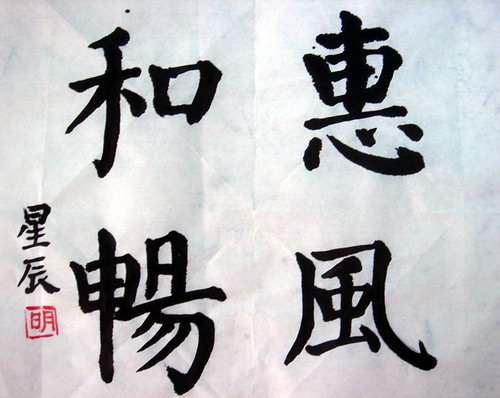 惠風
和暢
星辰
明